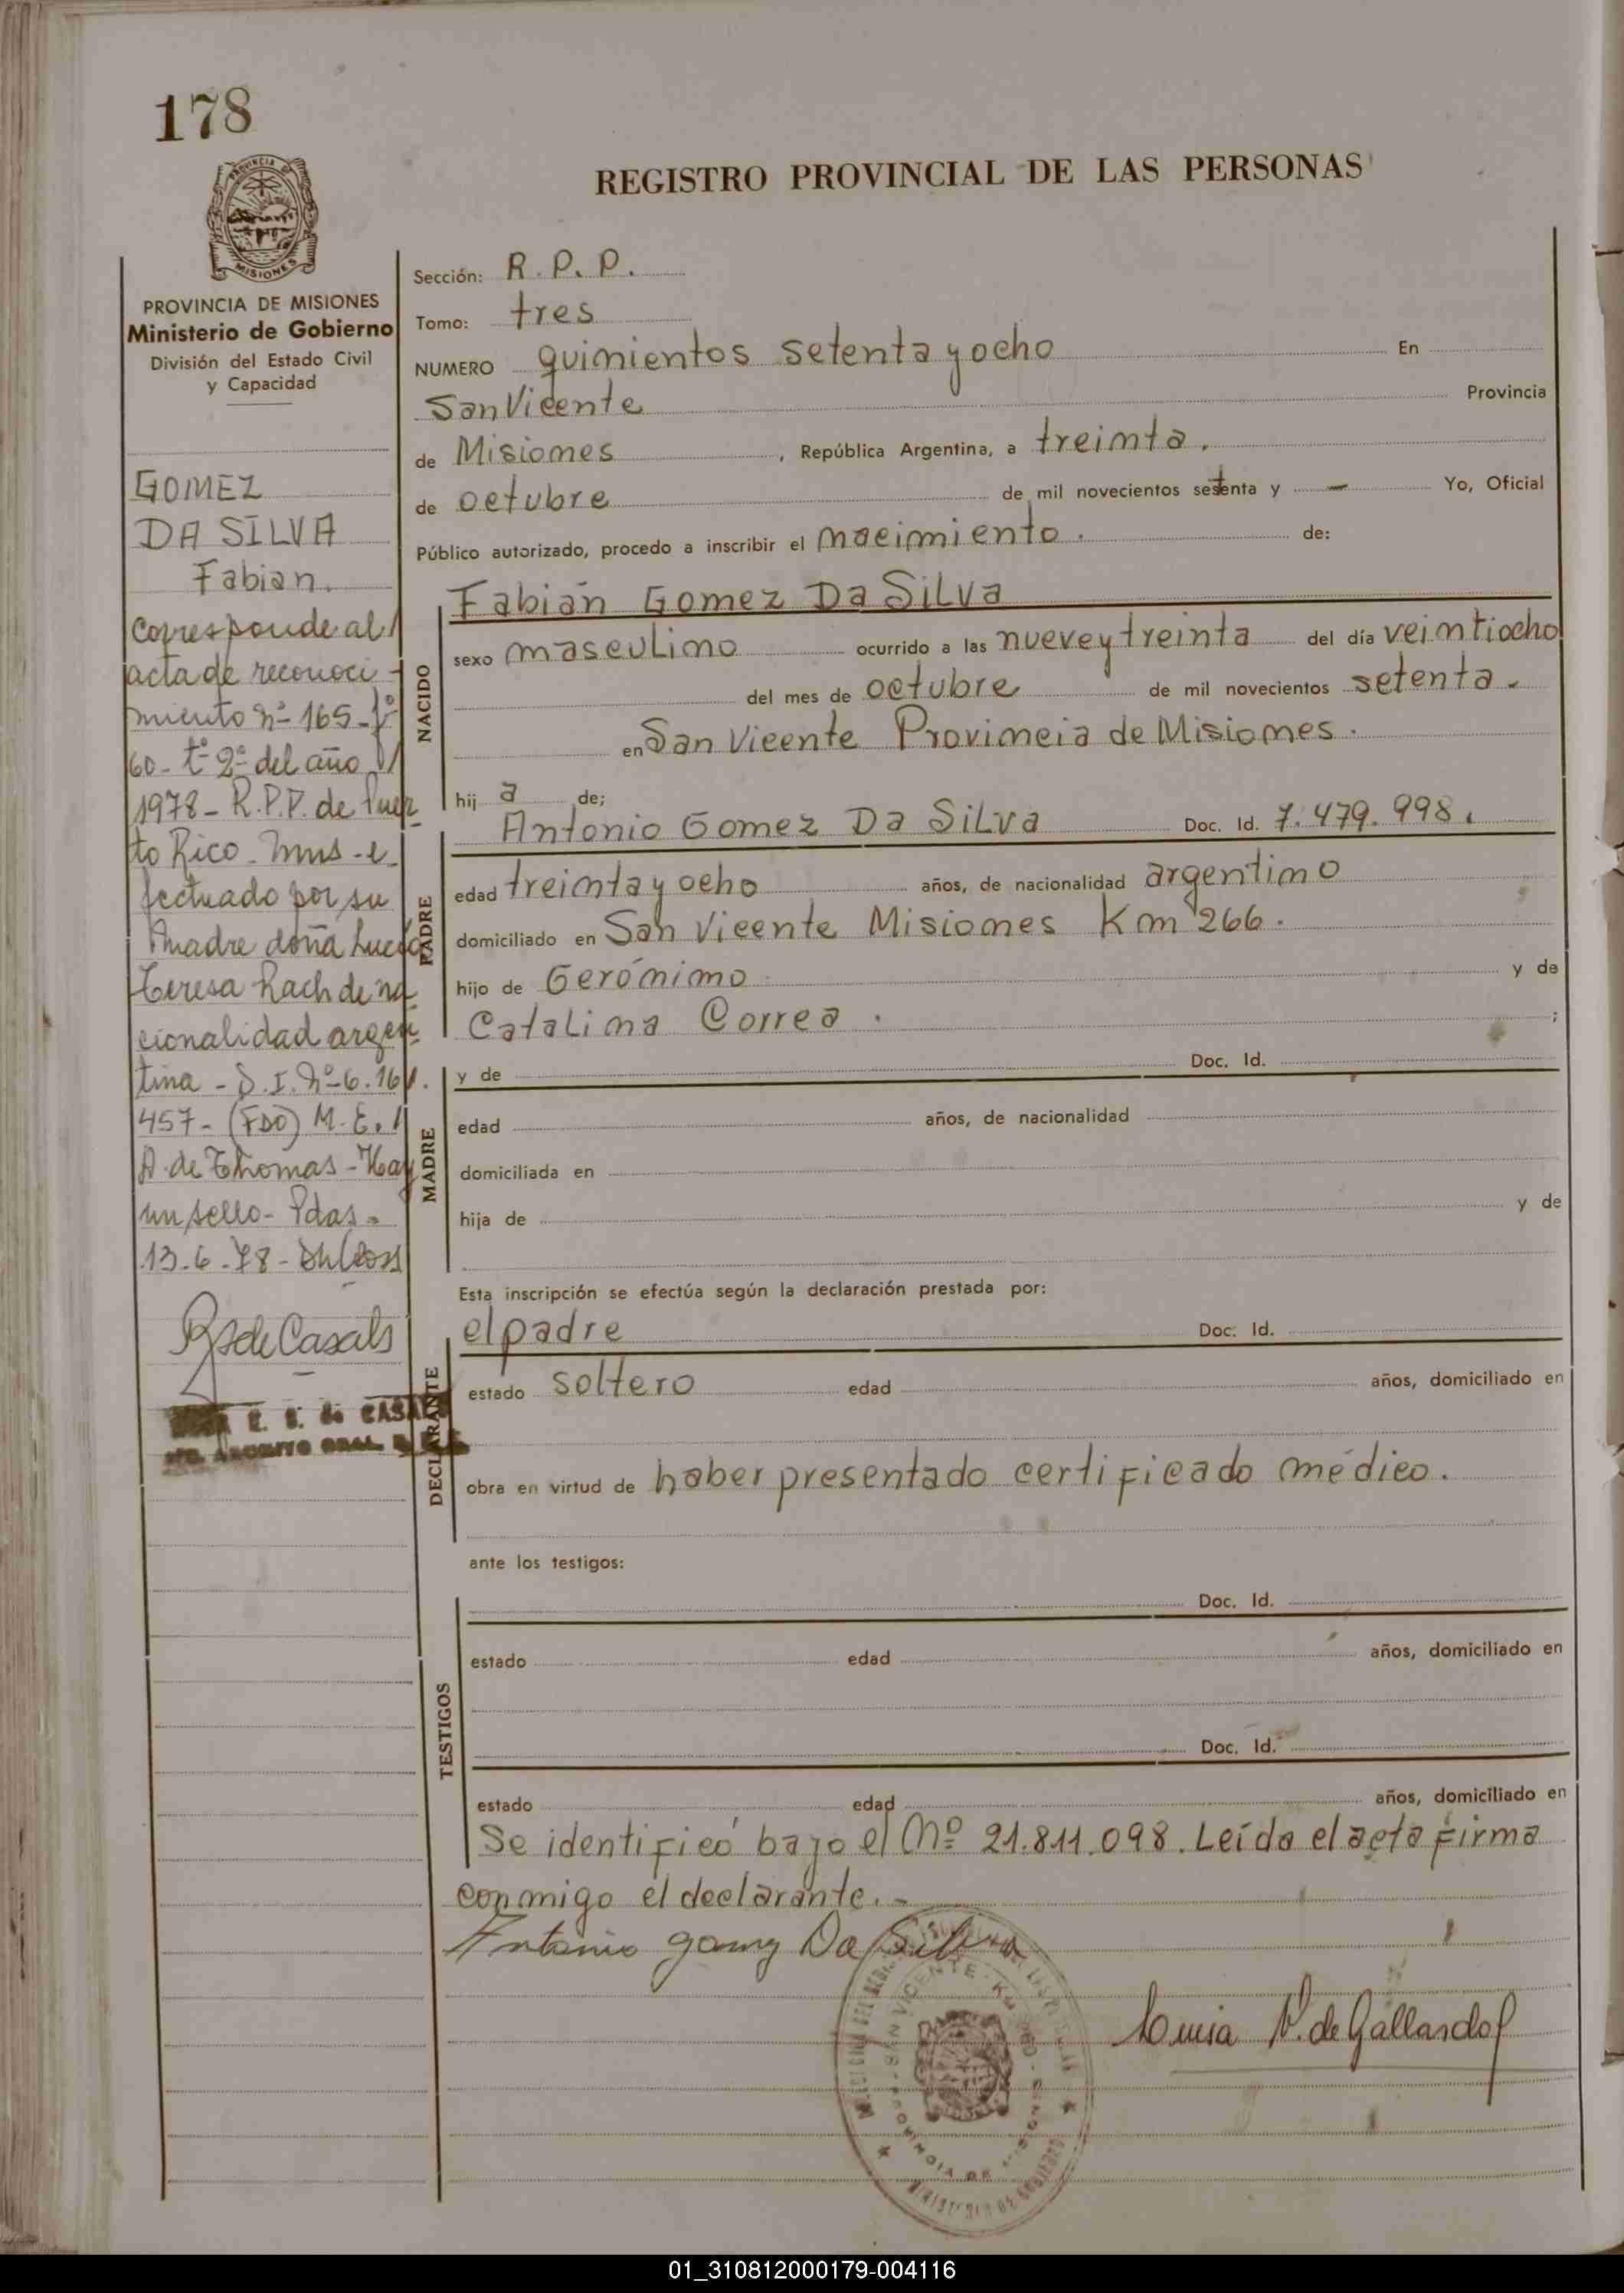 178
PROVINCIA
MISIONES
REGISTRO PROVINCIAL DE LAS PERSONAS
PROVINCIA DE MISIONES
Ministerio de Gobierno
División del Estado Civil
y Capacidad
GOMEZ
DA SILVA
Fabian.
Corresponde al
acta de reconoci-
miento nº 165-fº
60- tº 2º del año
1978- R.P.P. de Puer
to Rico- Mns-e
fectuado por su
Madre doña
Teresa Rach de na
cionalidad argen
tina - D.I. Nº 6.161.
457- (FDO) M.E.
A. de Thomas- Hay
un sello- Pdas-
13-6-78-
de Casals
E. S. de CASALS
Sección: R.P.P.
Tomo: tres
NUMERO quinientos setenta y ocho En
San Vicente Provincia
de Misiones, República Argentina, a treinta.
de octubre de mil novecientos setenta y — Yo, Oficial
Público autorizado, procedo a inscribir el nacimiento. de:
NACIDO
Fabián Gomez Da Silva
sexo masculino ocurrido a las nueve y treinta del día veintiocho
del mes de octubre de mil novecientos setenta.
en San Vicente Provincia de Misiones.
hij a de;
PADRE
Antonio Gomez Da Silva Doc. Id. 7.479.998.
edad treinta y ocho años, de nacionalidad argentino
domiciliado en San Vicente Misiones Km 266.
hijo de Gerónimo y de
Catalina Correa. ;
MADRE
y de Doc. Id.
edad años, de nacionalidad
domiciliada en
hija de y de
Esta inscripción se efectúa según la declaración prestada por:
DECLARANTE
el padre Doc. Id.
estado soltero edad años, domiciliado en
obra en virtud de haber presentado certificado médico.
ante los testigos:
TESTIGOS
Doc. Id.
estado edad años, domiciliado en
Doc. Id.
estado edad años, domiciliado en
Se identificó bajo el Nº 21.811.098. Leída el acta firma
conmigo el declarante.-
Antonio gomez Da Silva
Luisa V. de Gallardo
SAN VICENTE
PROVINCIA DE MISIONES
MINISTERIO DE GOBIERNO
01_310812000179-004116